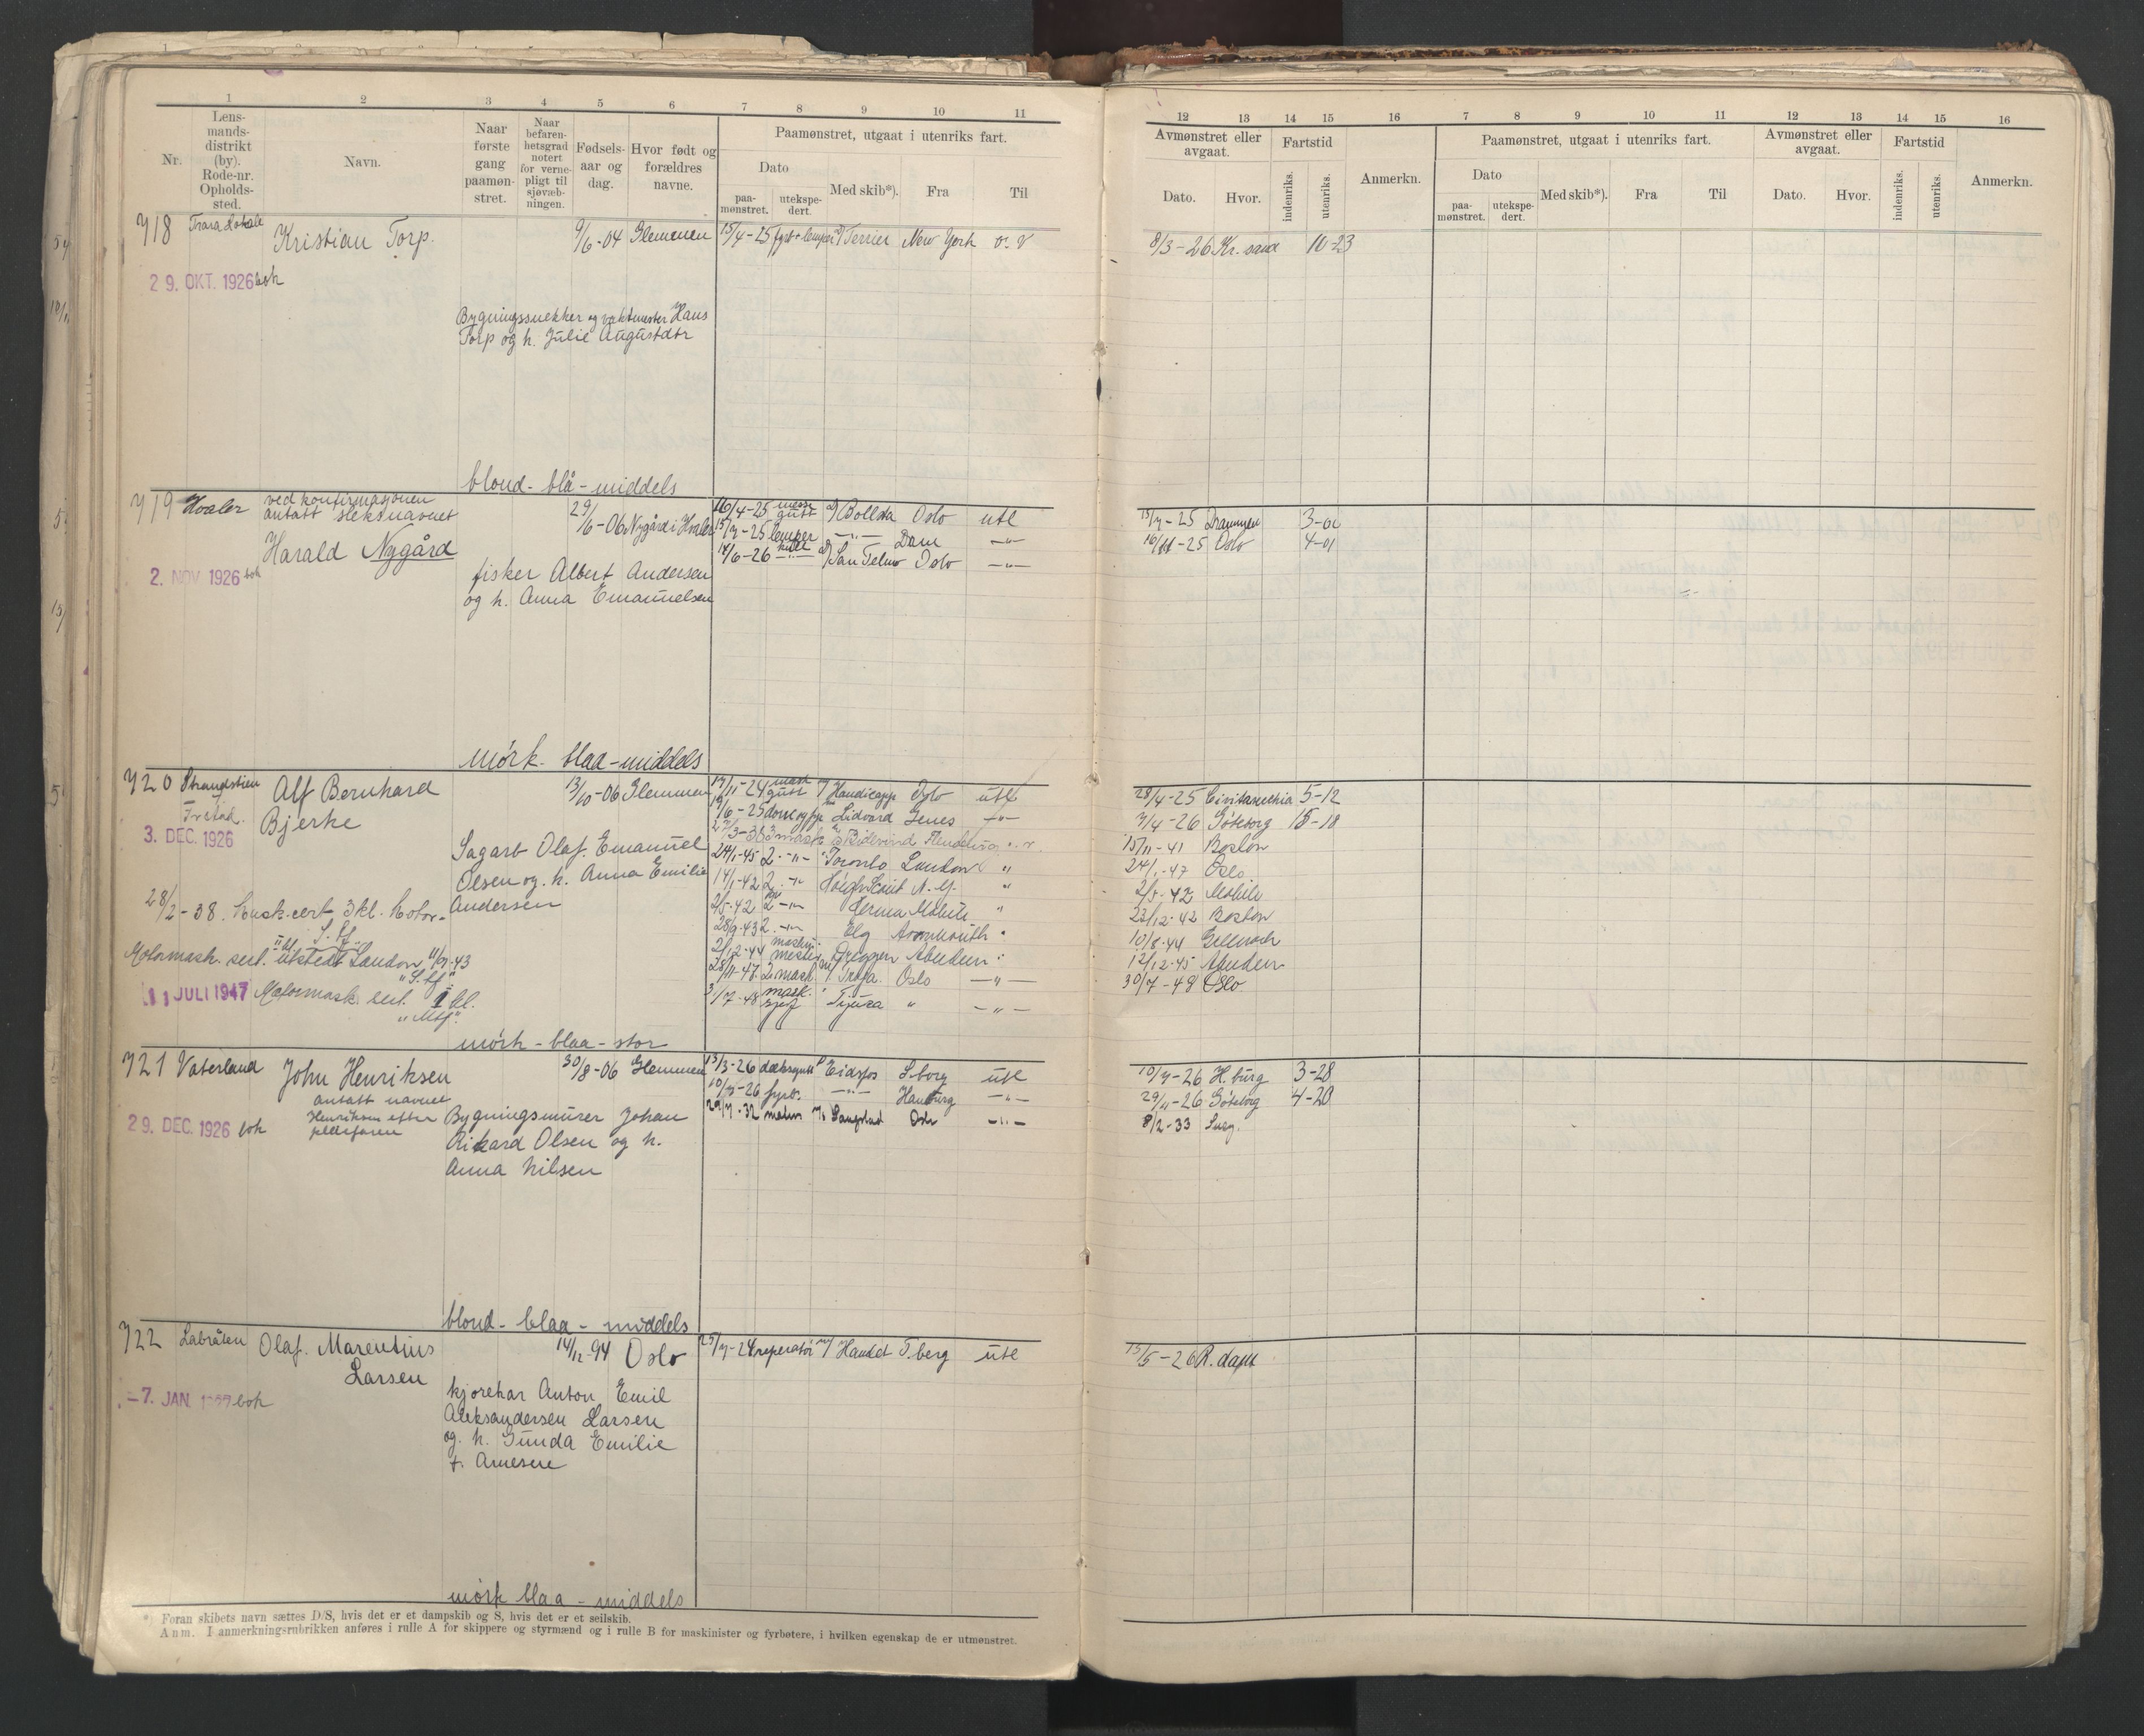 1 2 3 4 5 6 7 8 9 10 11
Nr.
Lens-
mands-
distrikt
(by).
Rode-nr.
Opholds-
sted.
Navn.
Naar
første
gang
paamøn-
stret.
Naar
befaren-
hetsgrad
notert
for verne-
pligt til
sjøvæb-
ningen.
Fødsels-
aar og
dag.
Hvor født og
forældres
navne.
Paamønstret, utgaat i utenriks fart.
Dato
paa-
mønstret.
utekspe-
dert.
Med skib*).
Fra
Til
718 Trara Kristian Torp. 9/6-04 Glemmen 15/4-25 fyrb+lemper Terrier New York o. V
29. OKT. 1926 boh
Bygningssnekker og vaktmester Hans
Torp og h. Julie Augustdtr
blond - blå - middels
719 Hvaler ved konfirmasjonen
antatt slektsnavnet
Harald Nygård 29/6-06 Nygård i Hvaler
16/4-25 Bollsta Oslo utl
15/7-25 lemper -"- Dram -"-
14/6-26 -"- San Telmo Oslo -"-
2. NOV 1926 boh
fisker Albert Andersen
og h. Anna Emanuelsen
mørk - blaa - middels
720 Strandstien Alf Bernhard 13/10-06 Glemmen
Fr.stad. Bjerke
3. DEC. 1926
Sagarb Olaf Emanuel
Olsen og h. Anna Emilie
Andersen
17/11-24 mask gutt Handicapp Oslo utl
19/6-25 Lidvard Genes -"-
3-38 3 mask
24/1-45 2. -"- Toronto London "
14/1-42 2. -"- Høegh Scout N.Y. "
2/5-42 2 -"- Herma Mobile "
28/9-43 2. -"- Elg Avonmouth "
2/12-44 maskin mester Dreggen Aberdeen "
28/11-47 2 mask. Troja Oslo -"-
3/7-48 mask. sjef " Tijuca " -"-
28/2-38. Mask.cert. 3 kl. Motor-
Motormask. sert. utstedt London 11/9-43
11 JULI 1947 Motormask. sert. 1 kl.
"Mtf".
mørk - blaa - stor
721 Vaterland John Henriksen 30/8-06 Glemmen
antatt navnet
Henriksen efter
pleiefaren
29. DEC. 1926 boh
Bygningsmurer Johan
Rikard Olsen og h.
Anna Nilsen
13/3-26 dæksgutt Eidsfos S.borg utl
10/7-26 fyrb. -"- Hamburg -"-
29/7-32 matr Oslo -"-
blond - blaa - middels
722 Labråten Olaf Marentius 14/12-94 Oslo 25/7-24 reperatør Hanket T.berg utl
Larsen
-7. JAN. boh
kjørekar Anton Emil
Aleksandersen Larsen
og h. Gunda Emilie
f. Arnesen
mørk blaa - middels
*) Foran skibets navn sættes D/S, hvis det er et dampskib og S, hvis det er et seilskib.
Anm. I anmerkningsrubrikken anføres i rulle A for skippere og styrmænd og i rulle B for maskinister og fyrbøtere, i hvilken egenskap de er utmønstret.
12 13 14 15 16 7 8 9 10 11 12 13 14 15 16
Avmønstret eller
avgaat.
Dato. Hvor.
Fartstid
indenriks. utenriks.
Anmerkn.
Paamønstret, utgaat i utenriks fart.
Dato
paa-
mønstret.
utekspe-
dert.
Med skib*). Fra Til
Avmønstret eller
avgaat.
Dato. Hvor.
Fartstid
indenriks. utenriks.
Anmerkn.
8/3-26 Kr.sand 10-23
15/7-25 Drammen 3-01
16/11-25 Oslo 4-01
28/4-25 Civitavechia 5-12
7/4-26 Göteborg 15-18
15/11-41 Boston
24/1-47 Oslo
2/5-42 Mobile
22/12-42 Boston
10/8-44
12/12-45 Aberdeen
30/7-48 Oslo
10/7-26 H.burg 3-28
29/11-26 Göteborg 4-20
8/2-33
15/5-26 R.dam